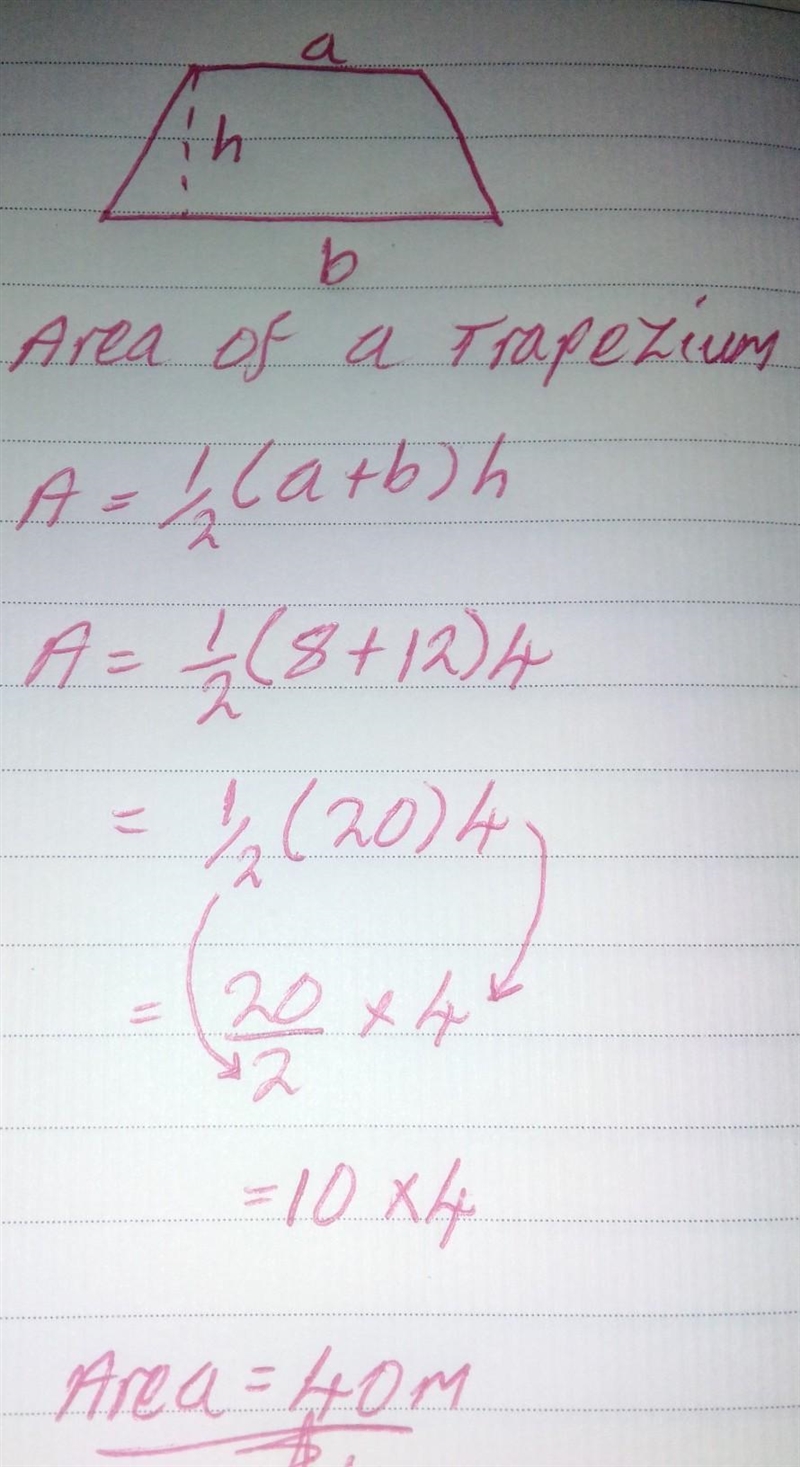 a
h
b
Area of a Trapezium
A = 1/2 (a+b) h
A = 1/2 (8+12) 4
= 1/2 (20) 4
= 20/2 × 4
= 10 × 4
Area = 40m